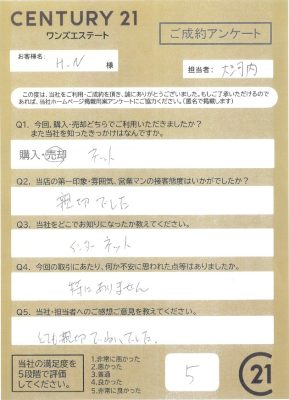 CENTURY 21
ワンズエステート
ご成約アンケート
お客様名:
H.N 様
担当者: 大河内
この度は、当社をご利用・ご成約を頂き、誠にありがとうございました。もしご了承いただけるので
あれば、当社ホームページ掲載用アンケートにご協力ください。(匿名で掲載します)
Q1. 今回、購入・売却どちらでご利用いただきましたか?
また当社を知ったきっかけはなんですか。
購入・売却 ネット
Q2. 当店の第一印象・雰囲気、営業マンの接客態度はいかがでしたか?
親切でした
Q3. 当社をどこでお知りになったか教えてください。
インターネット
Q4. 今回の取引にあたり、何か不安に思われた点等はありましたか。
特にありません
Q5. 当社・担当者へのご感想ご意見を教えてください。
とても親切でした。
当社の満足度を
5段階で評価
してください。
1.非常に悪かった
2.悪かった
3.普通
4.良かった
5.非常に良かった
5
C21